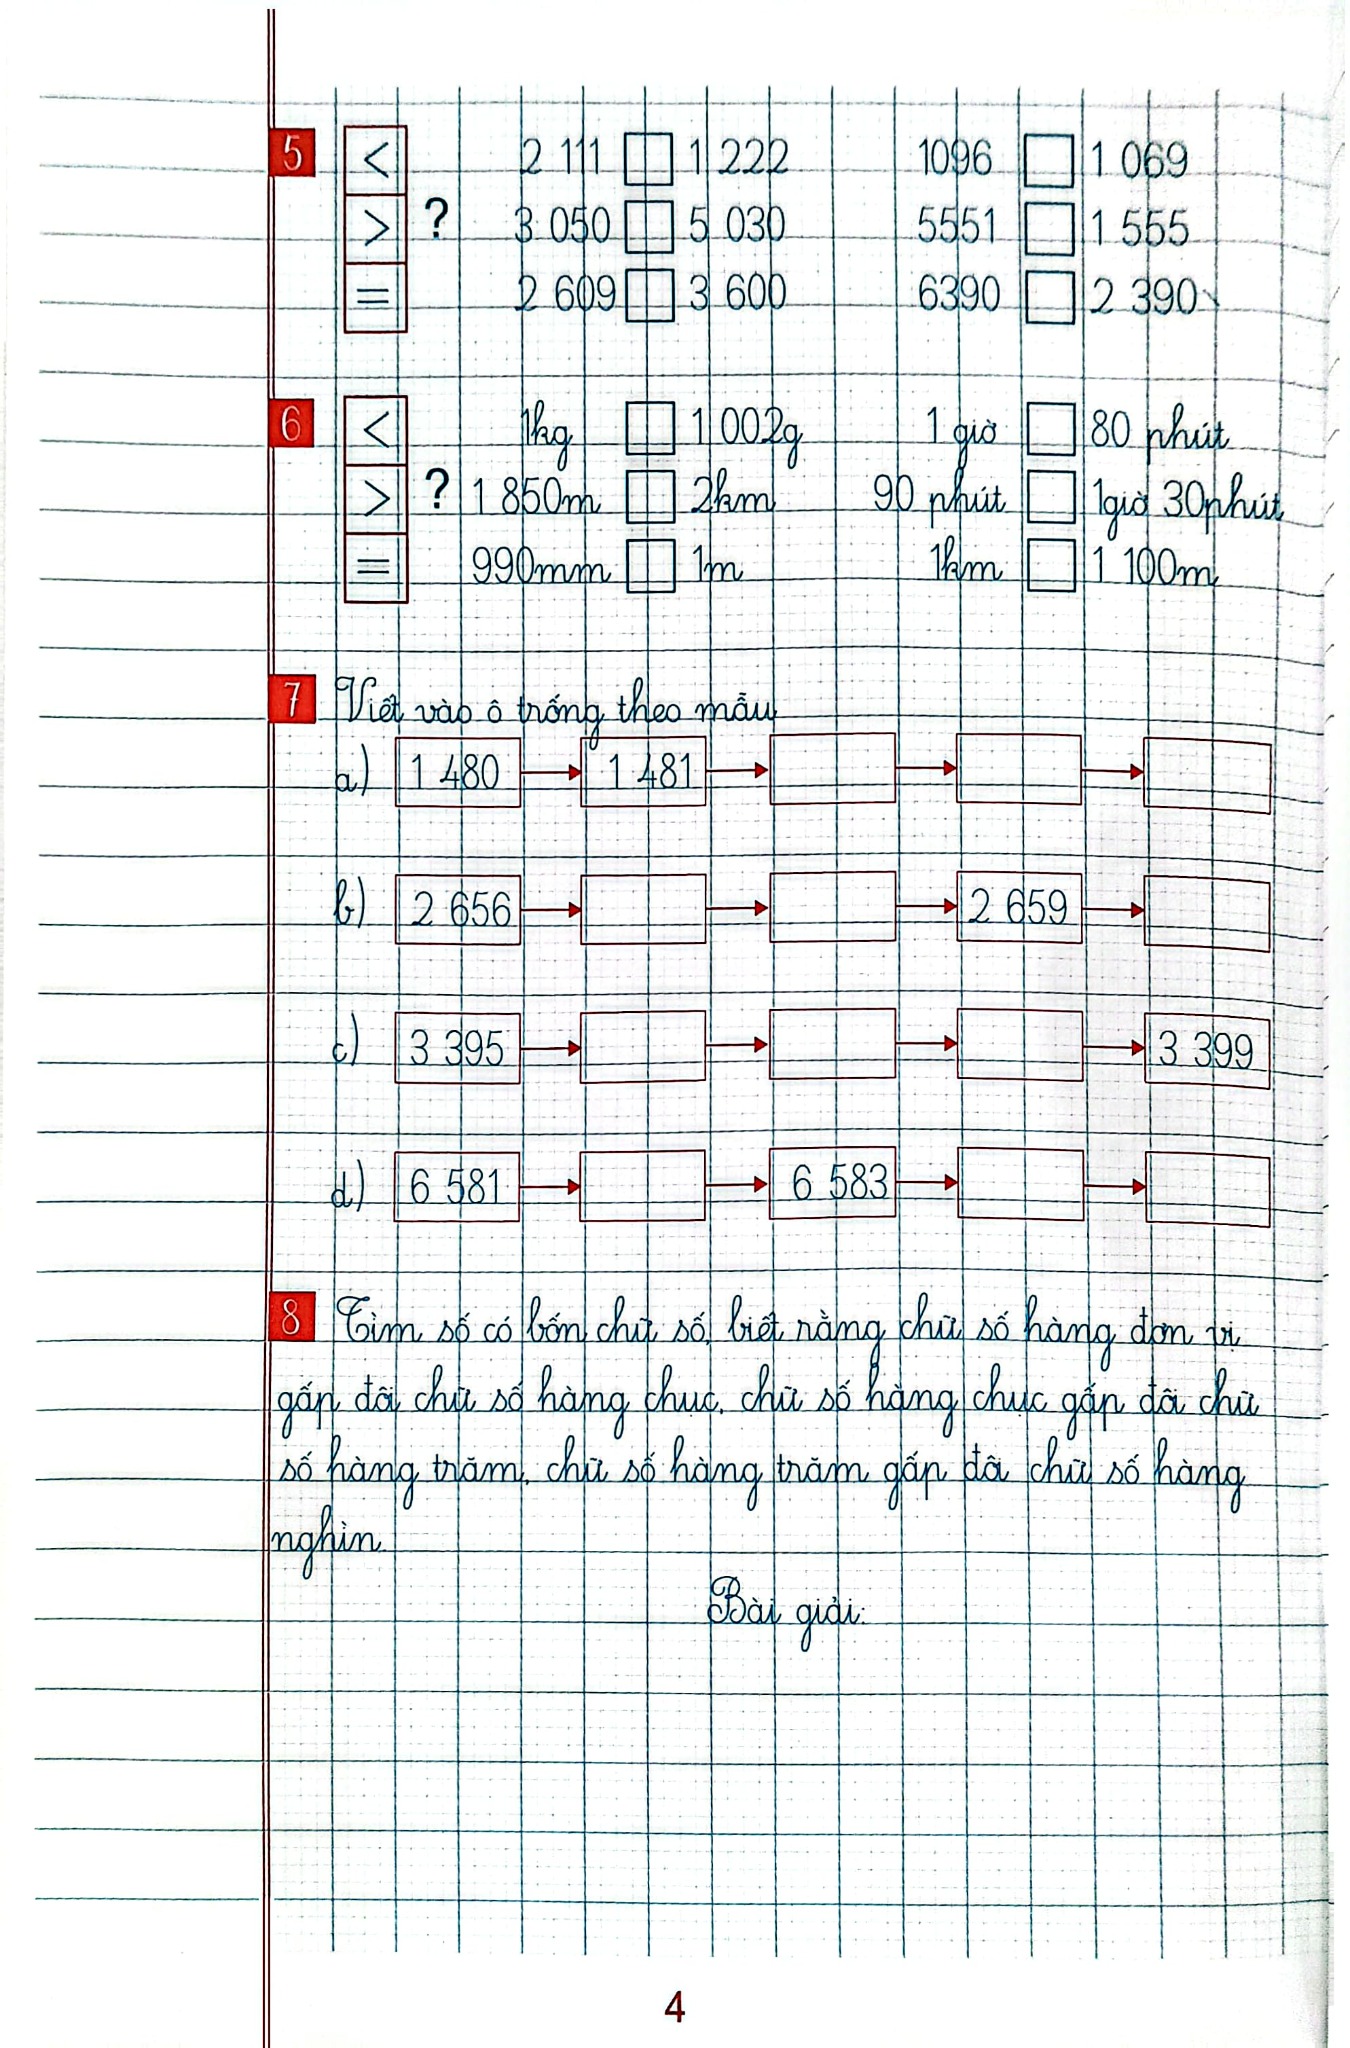 5 < 2 111 1 222 1096 1 069
> ? 3 050 5 030 5551 1 555
= 2 609 3 600 6390 2 390
6 < 1kg 1 002g 1 giờ 80 phút
> ? 1 850m 2km 90 phút 1giờ 30phút
= 990mm 1m 1km 1 100m
7 Viết vào ô trống theo mẫu
a) 1 480 1 481
b) 2 656 2 659
c) 3 395 3 399
d) 6 581 6 583
8 Tìm số có bốn chữ số, biết rằng chữ số hàng đơn vị
gấp đôi chữ số hàng chục, chữ số hàng chục gấp đôi chữ
số hàng trăm, chữ số hàng trăm gấp đôi chữ số hàng
nghìn.
Bài giải:
4